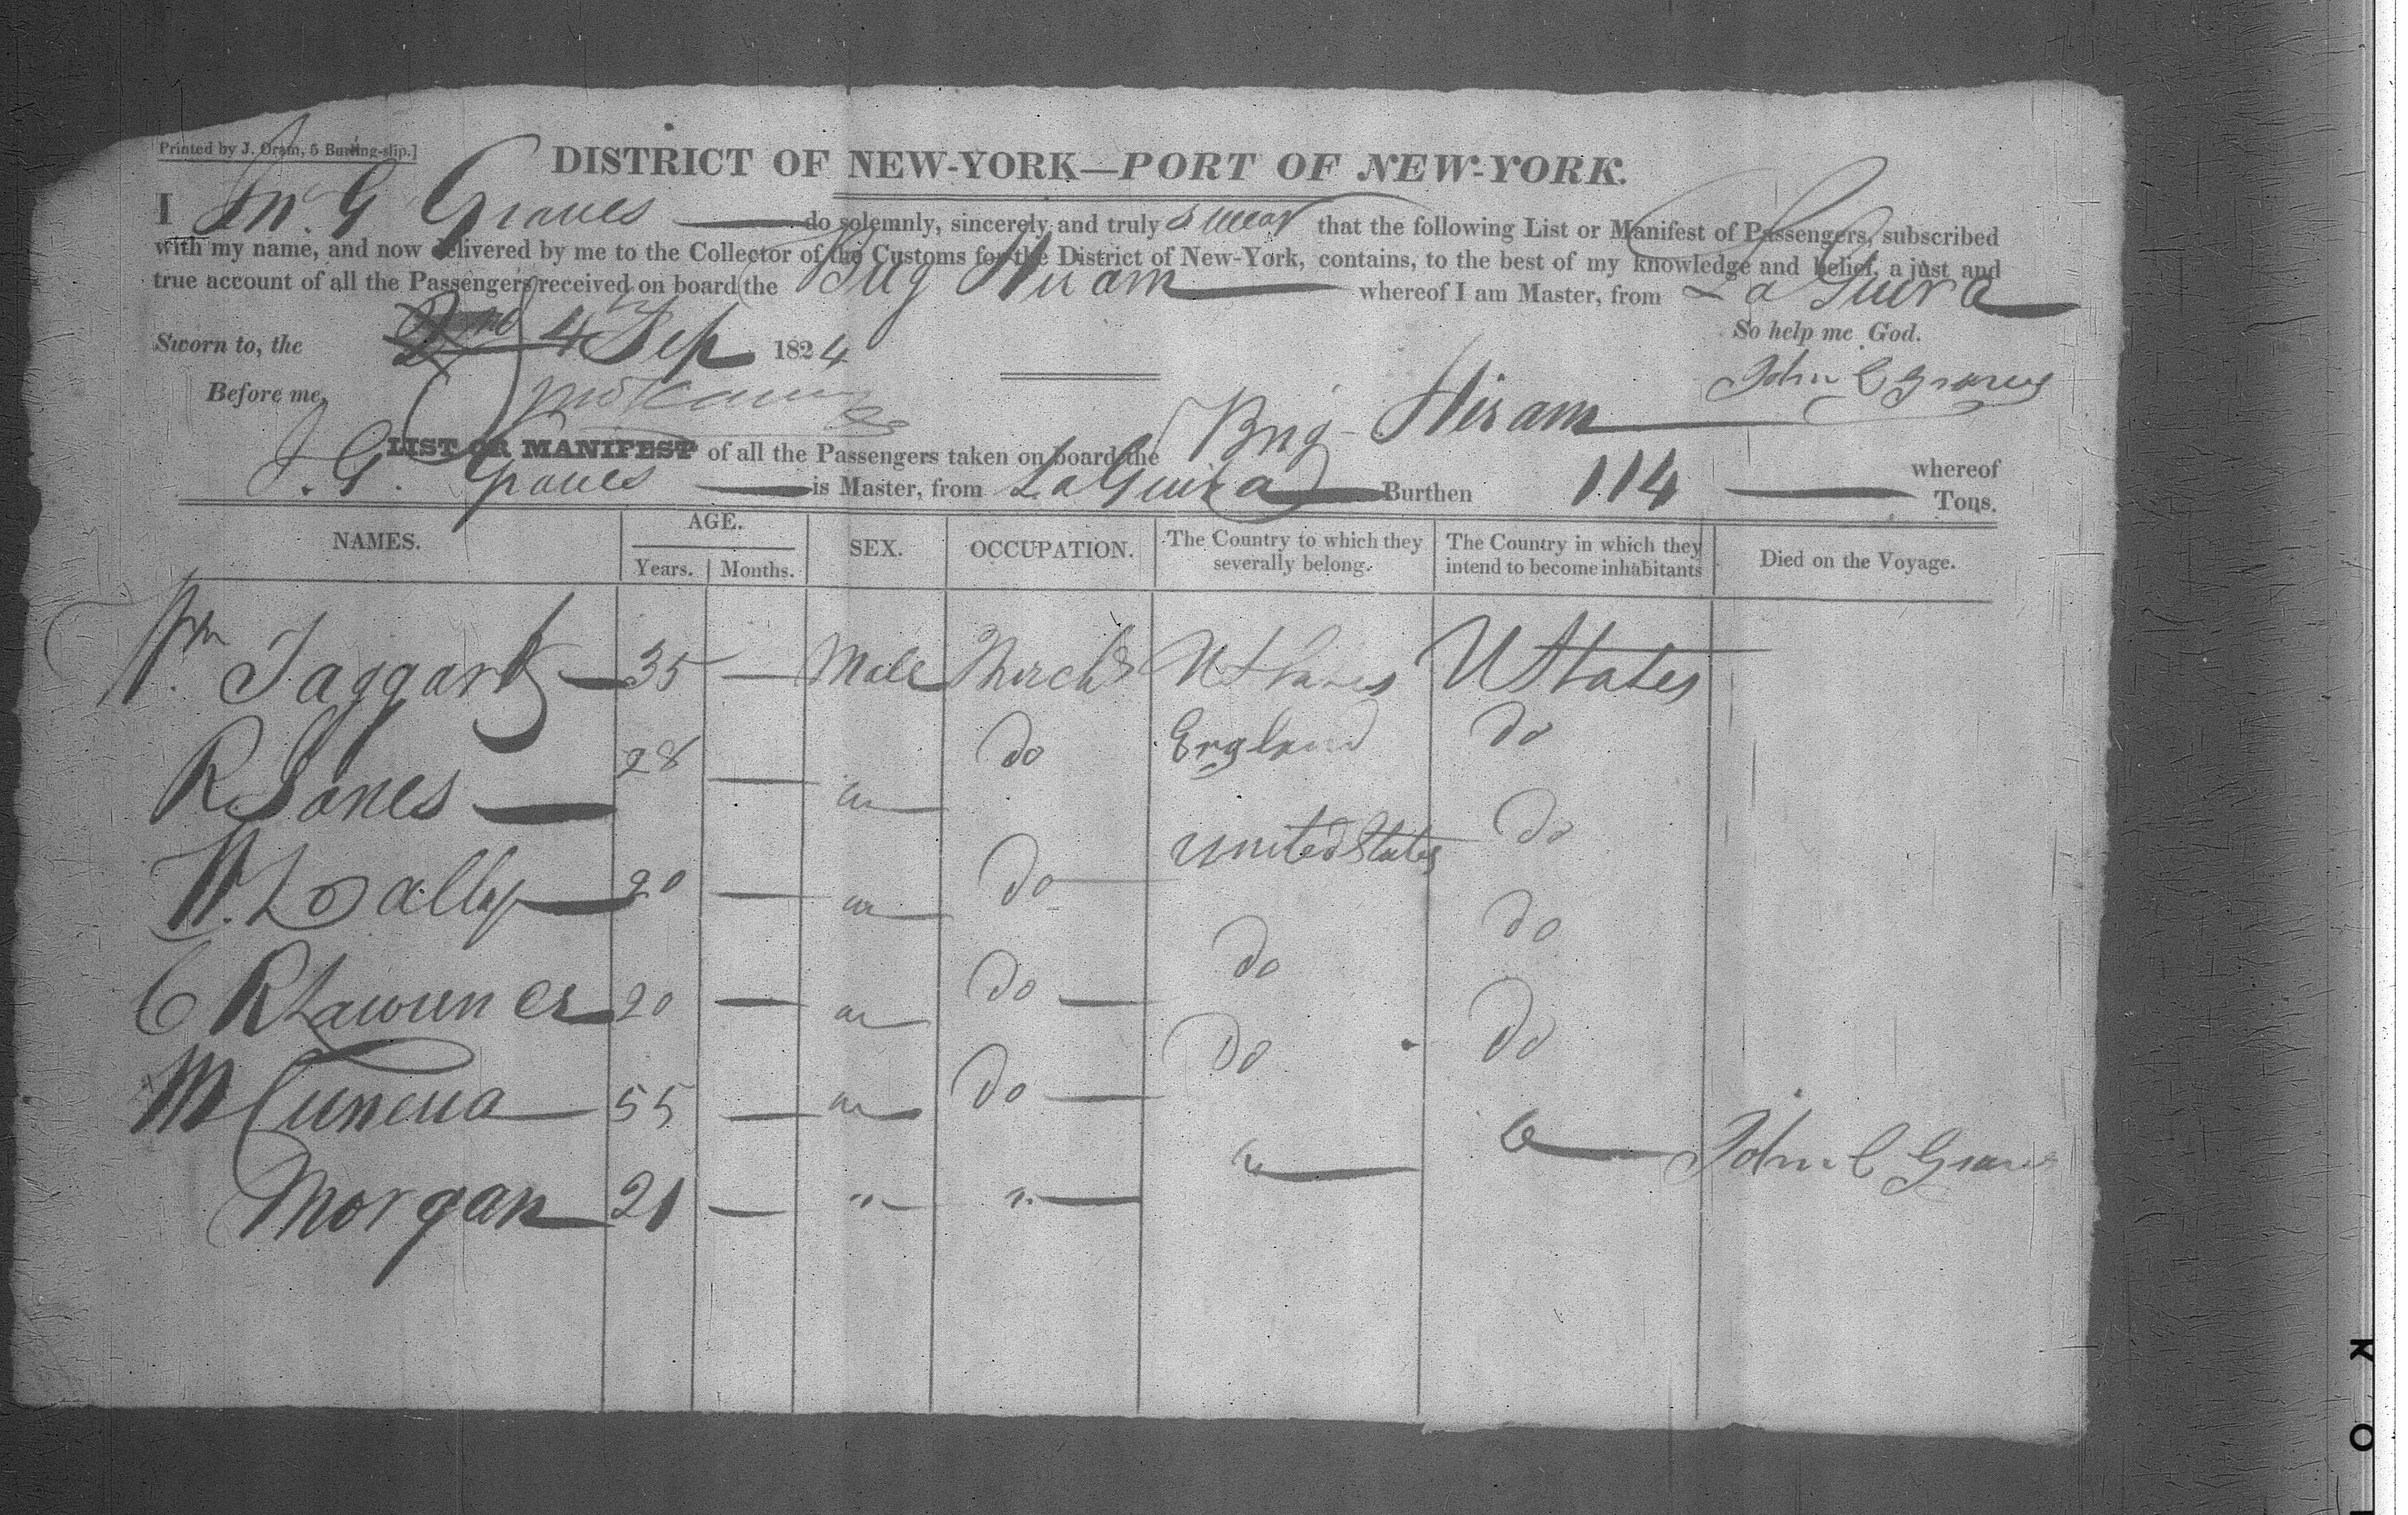 Printed by J. Oram, 5 Burling-slip.]
DISTRICT OF NEW-YORK—PORT OF NEW-YORK.
I Jn. G Graves do solemnly, sincerely and truly swear that the following List or Manifest of Passengers, subscribed
with my name, and now delivered by me to the Collector of the Customs for the District of New-York, contains, to the best of my knowledge and belief, a just and
true account of all the Passengers received on board the Brig Hiram whereof I am Master, from La Guira
So help me God.
Sworn to, the 4 Sep 1824
John C Graves
Before me,
LIST OR MANIFEST of all the Passengers taken on board the Brig Hiram whereof
J. G. Graves is Master, from LaGuira Burthen 114 Tons.
NAMES. AGE. SEX. OCCUPATION. The Country to which they severally belong. The Country in which they intend to become inhabitants Died on the Voyage.
Years. Months.
Wm Taggart 35 — Male Merch U States U States
R Jones 28 — " do England do
W. Lally 20 — " do United States do
C R Lawrence 20 — " do do do
M 55 — " do do do
Morgan 21 — " " " "
John C Graves
K O